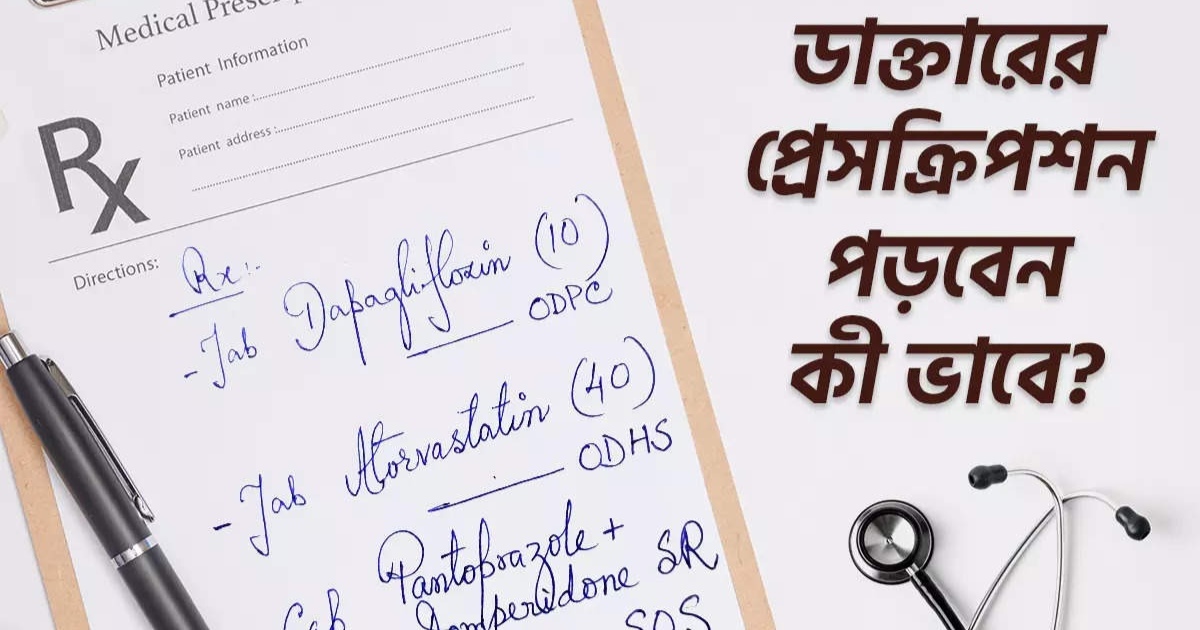 Medical Prescrip
Patient Information
Patient name :
Patient address :
Rx
Directions:
Rx:-
- Tab Dapagliflozin (10)
ODPC
- Tab Atorvastatin (40)
ODHS
Cap Pantoprazole +
Domperidone SR
SOS
ডাক্তারের
প্রেসক্রিপশন
পড়বেন
কী ভাবে?